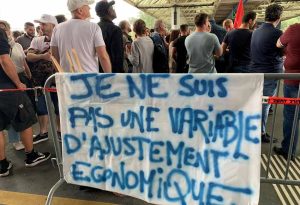 JE NE SUIS
PAS UNE VARIABLE
D'AJUSTEMENT
ECONOMIQUE